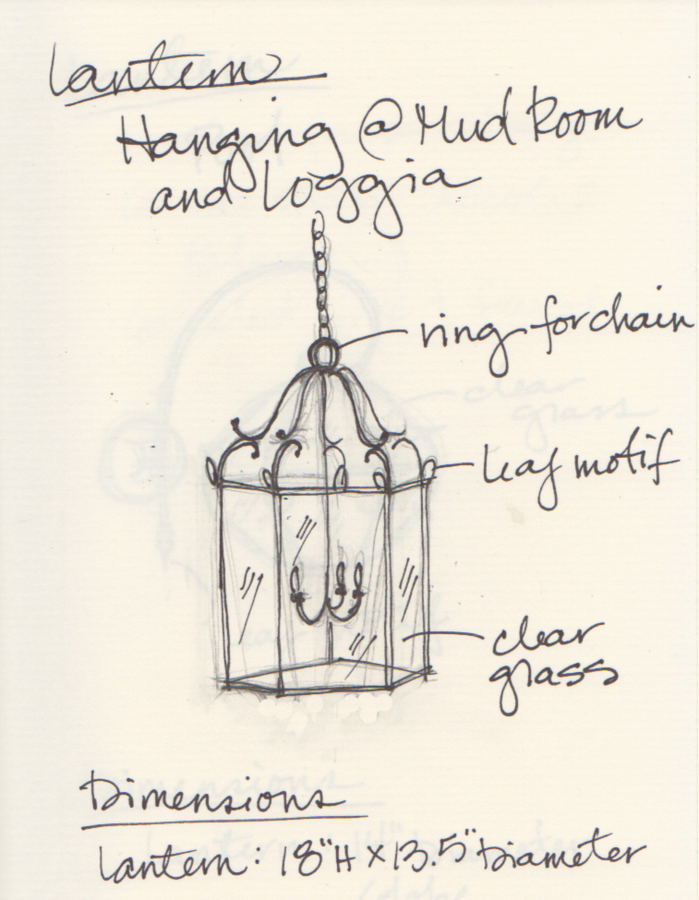 Lantern
Hanging @ Mud Room
and Loggia
ring for chain
clear
grass
leaf motif
clear
grass
Dimensions
Dimensions
Lantern: 18"H x 13.5" Diameter